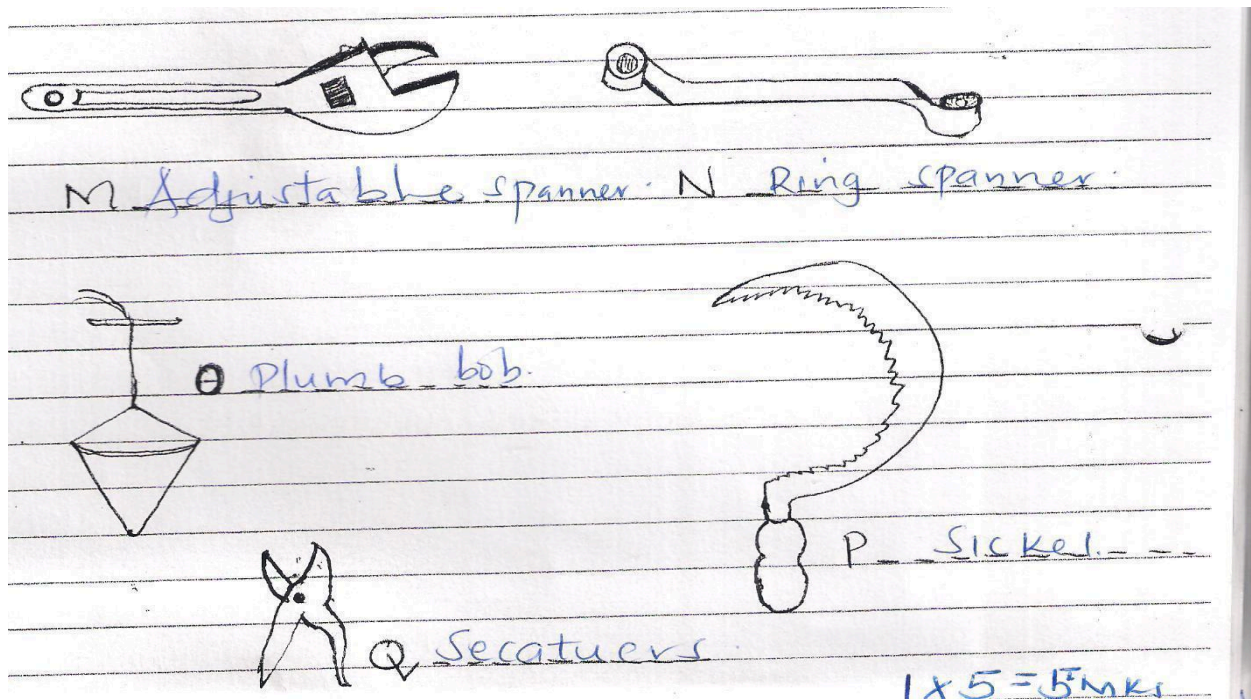 M Adjustable spanner. N Ring spanner.
O Plumb bob.
P Sickel.
Q Secatuers.
1 x 5 = 5mks